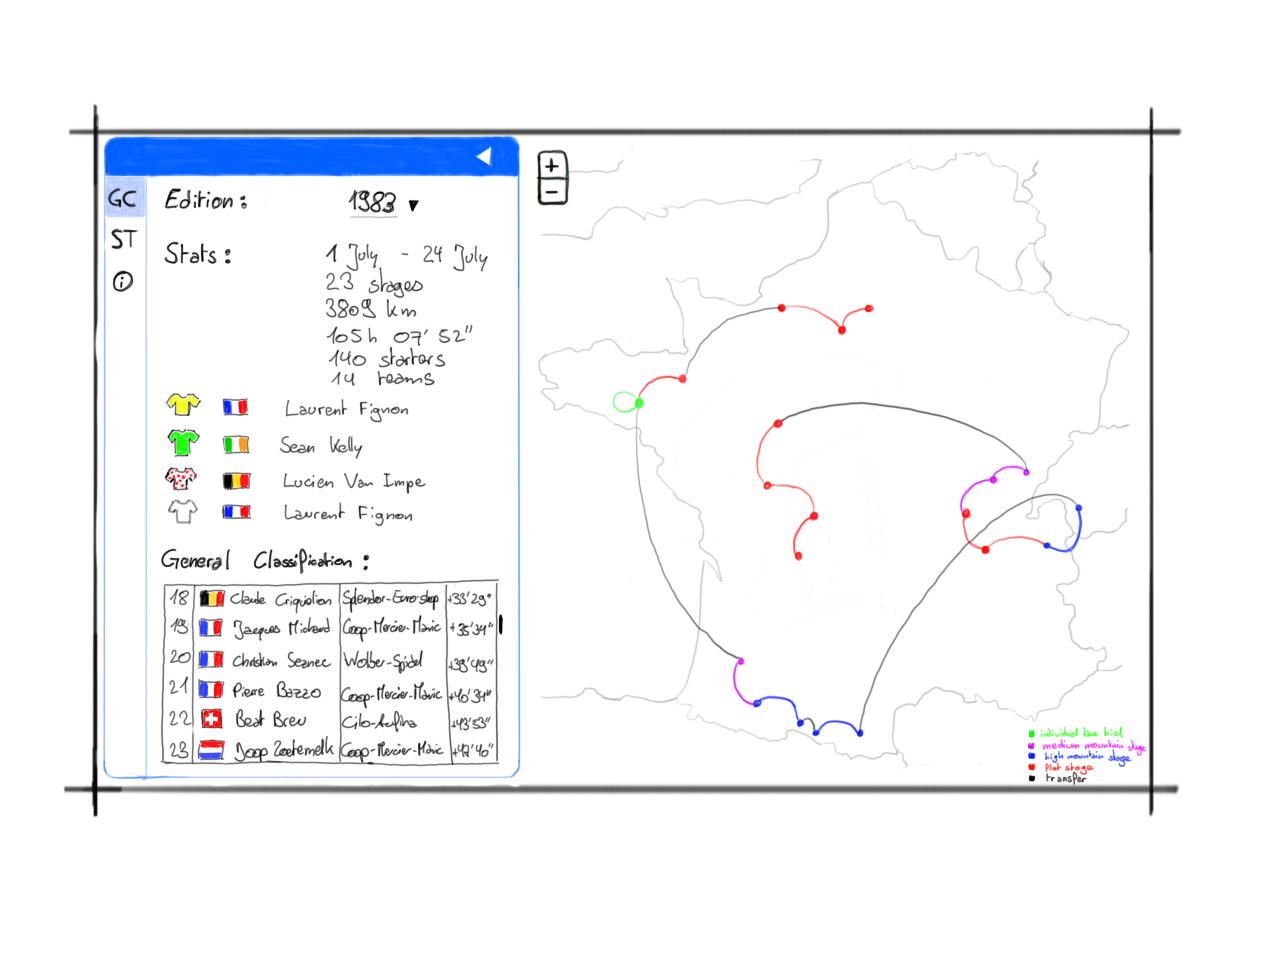 GC
ST
i
Edition: 1983 ▼
Stats: 1 July - 24 July
23 stages
3809 km
105h 07' 52"
140 starters
14 teams
Laurent Fignon
Sean Kelly
Lucien Van Impe
Laurent Fignon
General Classification:
18 Claude Criquielion Splendor-Euro-shop +33'29"
19 Jacques Michaud Coop-Mercier-Mavic +35'34"
20 Christian Seznec Wolber-Spidel +39'49"
21 Pierre Bazzo Coop-Mercier-Mavic +40'34"
22 Beat Breu Cilo-Aufina +43'53"
23 Joop Zoetemelk Coop-Mercier-Mavic
+
−
individual time trial
medium mountain stage
high mountain stage
flat stage
transfer